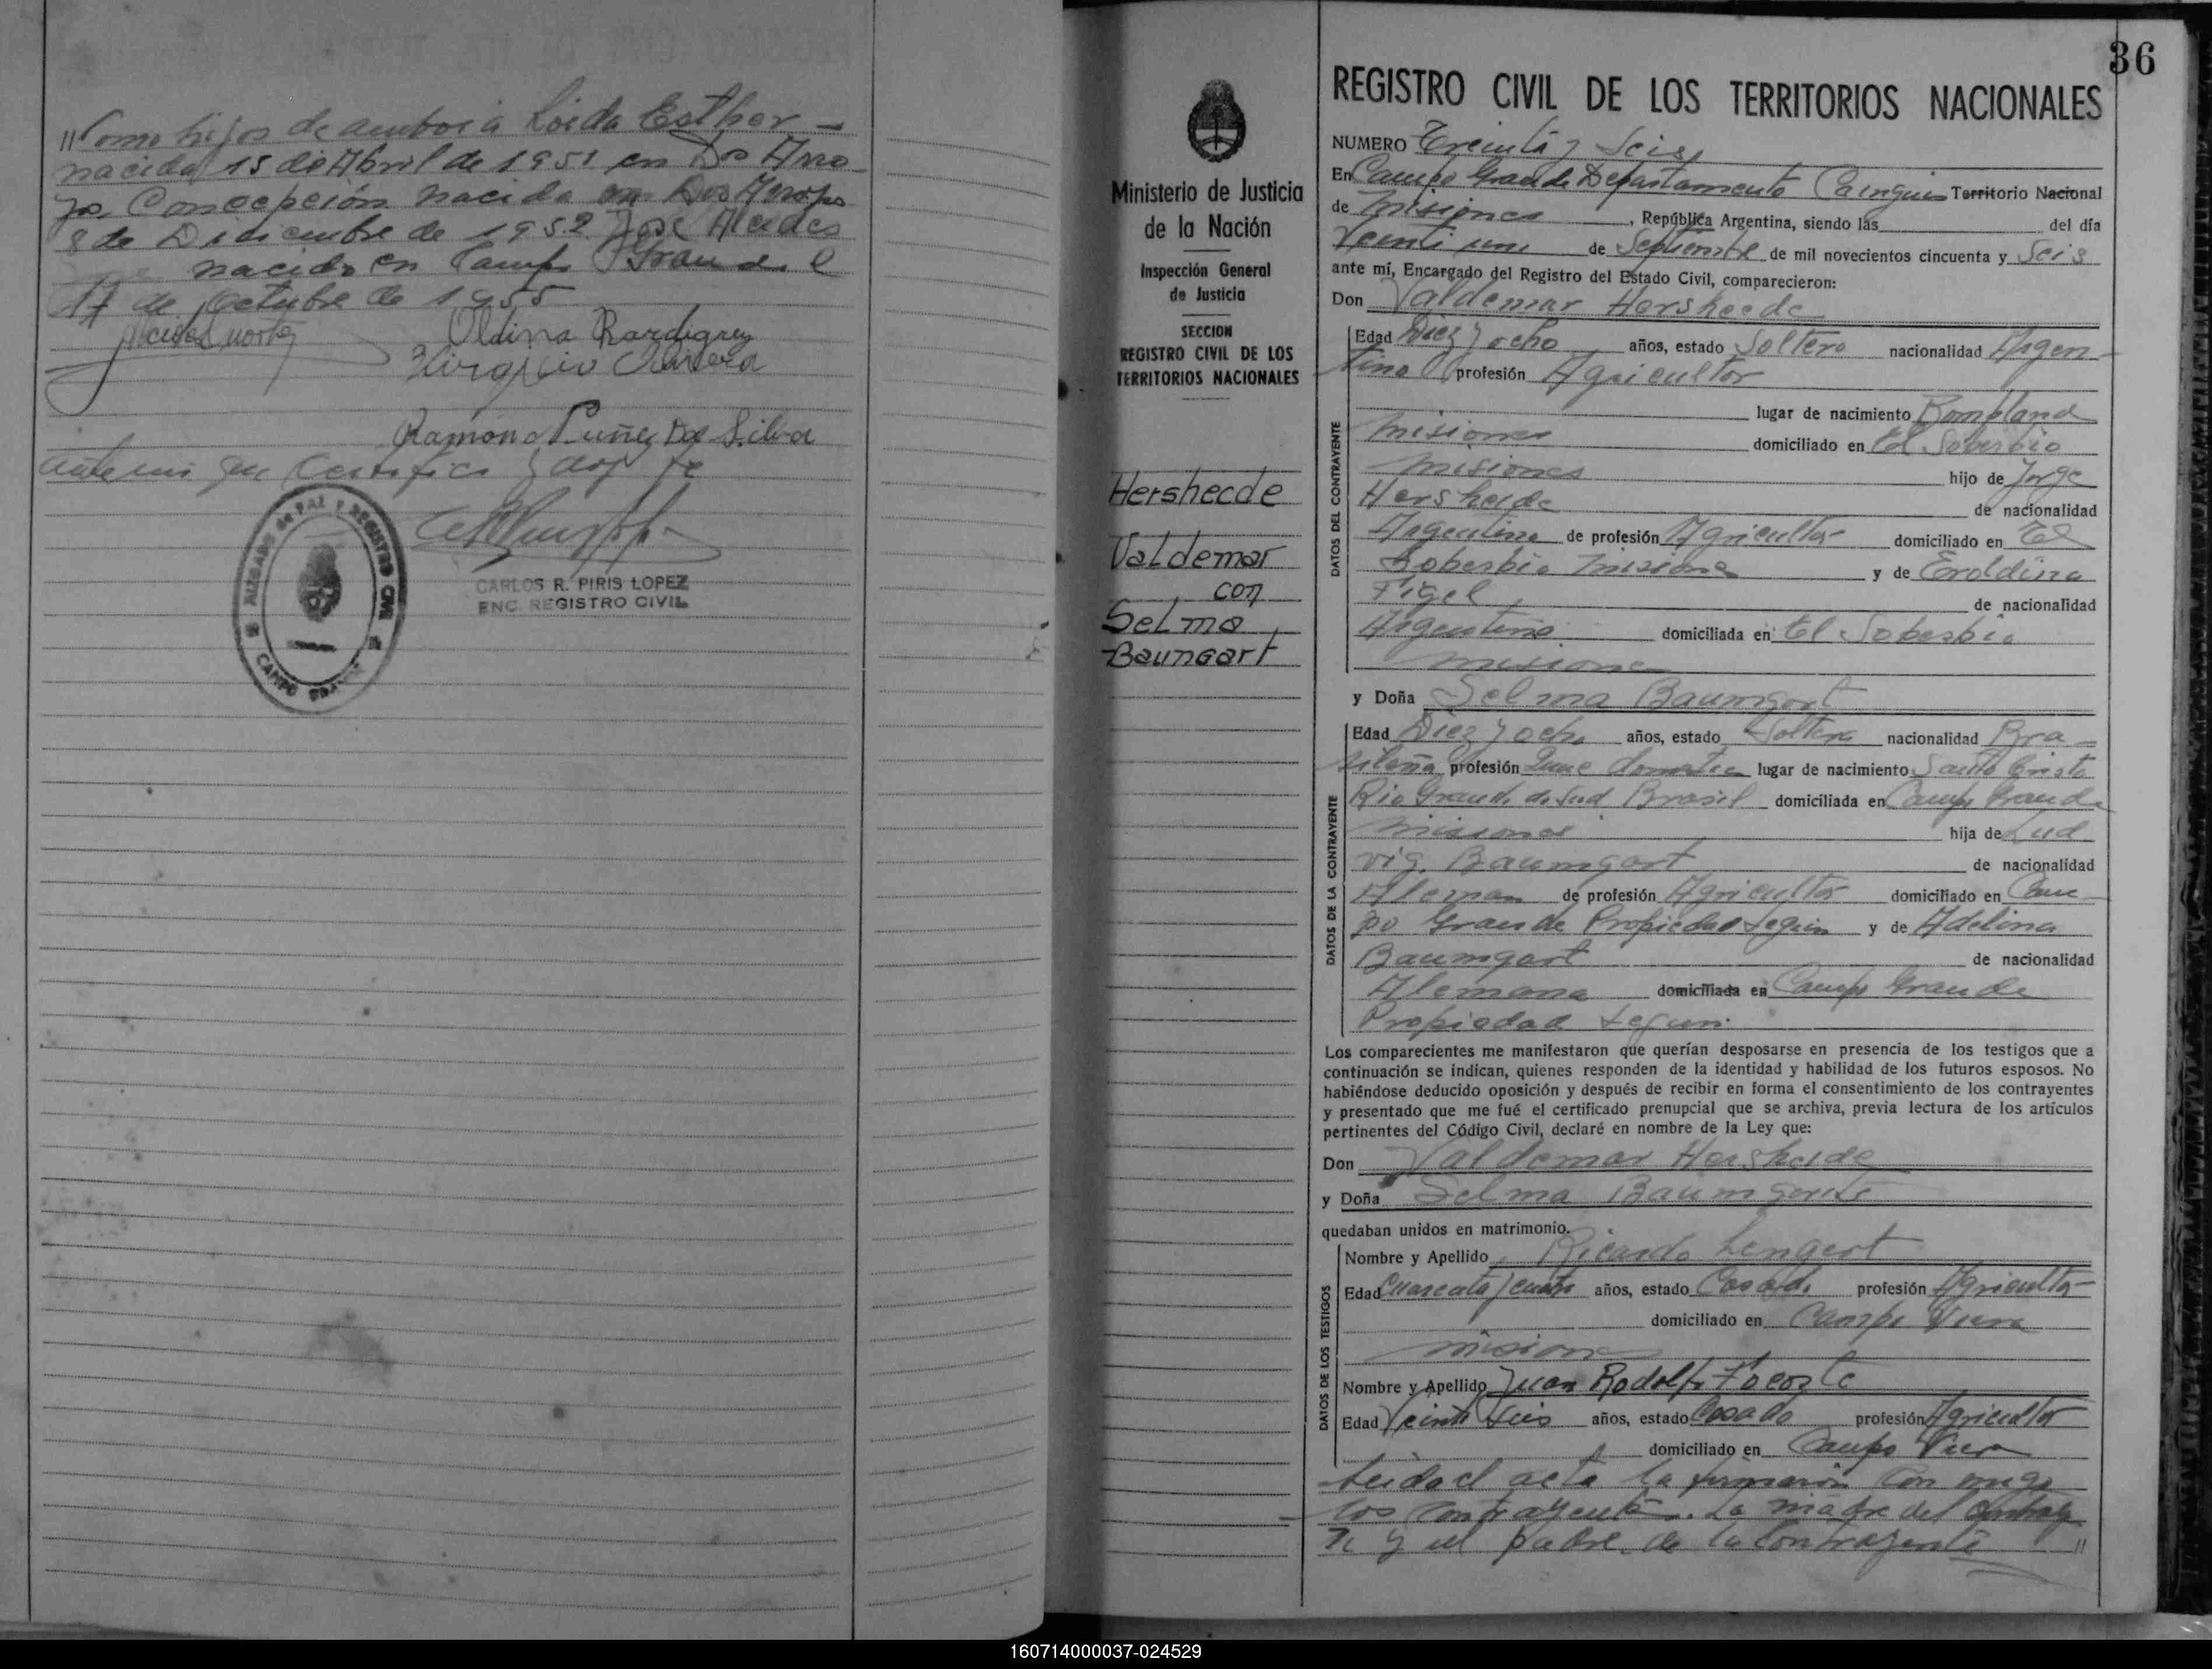 "Como hijos de ambos a Loida Esther
nacida 15 de Abril de 1951 en Dos Arro-
yos, Concepción nacida en Dos Arroyos
8 de Diciembre de 1952 José Alcides
nacido en Campo Grande el
17 de Octubre de 1955
Oldina Rardigrey
Ramona Nuñez Da Silva
ante mi que Certifico y doy fe
JUZGADO de PAZ Y REGISTRO CIVIL
CAMPO GRANDE
CARLOS R. PIRIS LOPEZ
ENC. REGISTRO CIVIL
36
Ministerio de Justicia
de la Nación
Inspección General
de Justicia
SECCION
REGISTRO CIVIL DE LOS
TERRITORIOS NACIONALES
Hershecde
Valdemar
con
Selma
Baungart
REGISTRO CIVIL DE LOS TERRITORIOS NACIONALES
NUMERO Treinta y Seis
En Campo Grande Departamento Cainguas Territorio Nacional
de Misiones, República Argentina, siendo las del día
Veinti uno de Septiembre de mil novecientos cincuenta y Seis
ante mí, Encargado del Registro del Estado Civil, comparecieron:
Don Valdemar Hersheede
DATOS DEL CONTRAYENTE
Edad Diez y ocho años, estado Soltero nacionalidad Argen-
tina profesión Agricultor
lugar de nacimiento Bompland
Misiones domiciliado en El Soberbio
Misiones hijo de Jorge
Hersheide de nacionalidad
Argentina de profesión Agricultor domiciliado en El
Soberbio Misiones y de Eroldina
Figel de nacionalidad
Argentina domiciliada en El Soberbio
Misiones
y Doña Selma Baumgart
DATOS DE LA CONTRAYENTE
Edad Diez y ocho años, estado Soltera nacionalidad Bra-
sileña profesión domestica lugar de nacimiento Santo Cristo
Rio Grande do Sud Brasil domiciliada en Campo Grande
Misiones hija de Lud
vig. Baumgart de nacionalidad
Aleman de profesión Agricultor domiciliado en Cam-
po Grande Propiedad Seguin y de Adelina
Baumgart de nacionalidad
Alemana domiciliada en Campo Grande
Propiedad Seguin
Los comparecientes me manifestaron que querían desposarse en presencia de los testigos que a
continuación se indican, quienes responden de la identidad y habilidad de los futuros esposos. No
habiéndose deducido oposición y después de recibir en forma el consentimiento de los contrayentes
y presentado que me fué el certificado prenupcial que se archiva, previa lectura de los artículos
pertinentes del Código Civil, declaré en nombre de la Ley que:
Don Valdemar Hersheide
y Doña Selma Baumgart
quedaban unidos en matrimonio.
DATOS DE LOS TESTIGOS
Nombre y Apellido Ricardo Lengert
Edad Cuarenta y cuatro años, estado Casado profesión Agricultor
domiciliado en Campo Viera
Misiones
Nombre y Apellido Juan Rodolfo
Edad Veinti Seis años, estado Casado profesión Agricultor
domiciliado en Campo Viera
Leida el acta la firmaron con migo
los contrayentes. La madre del contrayen
te y el padre de la contrayente "
160714000037-024529